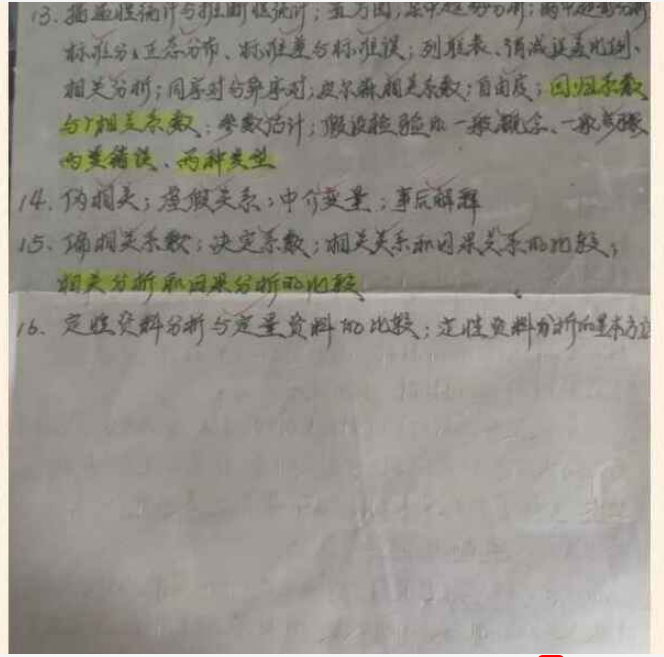 13、描述性统计与推断性统计；直方图；集中趋势分析；离中趋势分析
标准分、正态分布、标准差与标准误；列联表、消减误差比例、
相关分析；同序对与异序对；皮尔森相关系数；自由度；回归系数
与r相关系数；参数估计；假设检验的一般概念、一般步骤
两类错误、两种类型
14、伪相关；虚假关系；中介变量；事后解释
15、偏相关系数；决定系数；相关关系和因果关系的比较；
相关分析和因果分析的比较
16、定性资料分析与定量资料的比较；定性资料分析的基本方